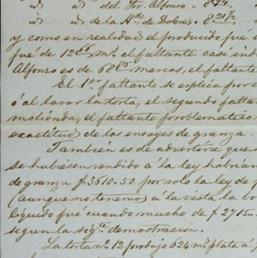 " " del Sor. Alfonso - 8
" " de la Na. de Dolores - 8 21/2
y como en realidad el producido fué
fué de 12 ms. el faltante casi
Alfonso es de 68 marcos, el faltante
El 1er. faltante se explica por
ó al lavar la torta, el segundo falta
molienda, el faltante problematico
exactitud de los ensayes de granza.
Tambien es de advertirse que
se hubiesen rendido á la ley habrian
de granza $3610.50 por solo la ley de
(aunque no tenemos á la vista la bo
liquido fué cuando mucho de $2715
segun la sigte. demostracion.
La torta no. 12 produjo 624 ms. plata á